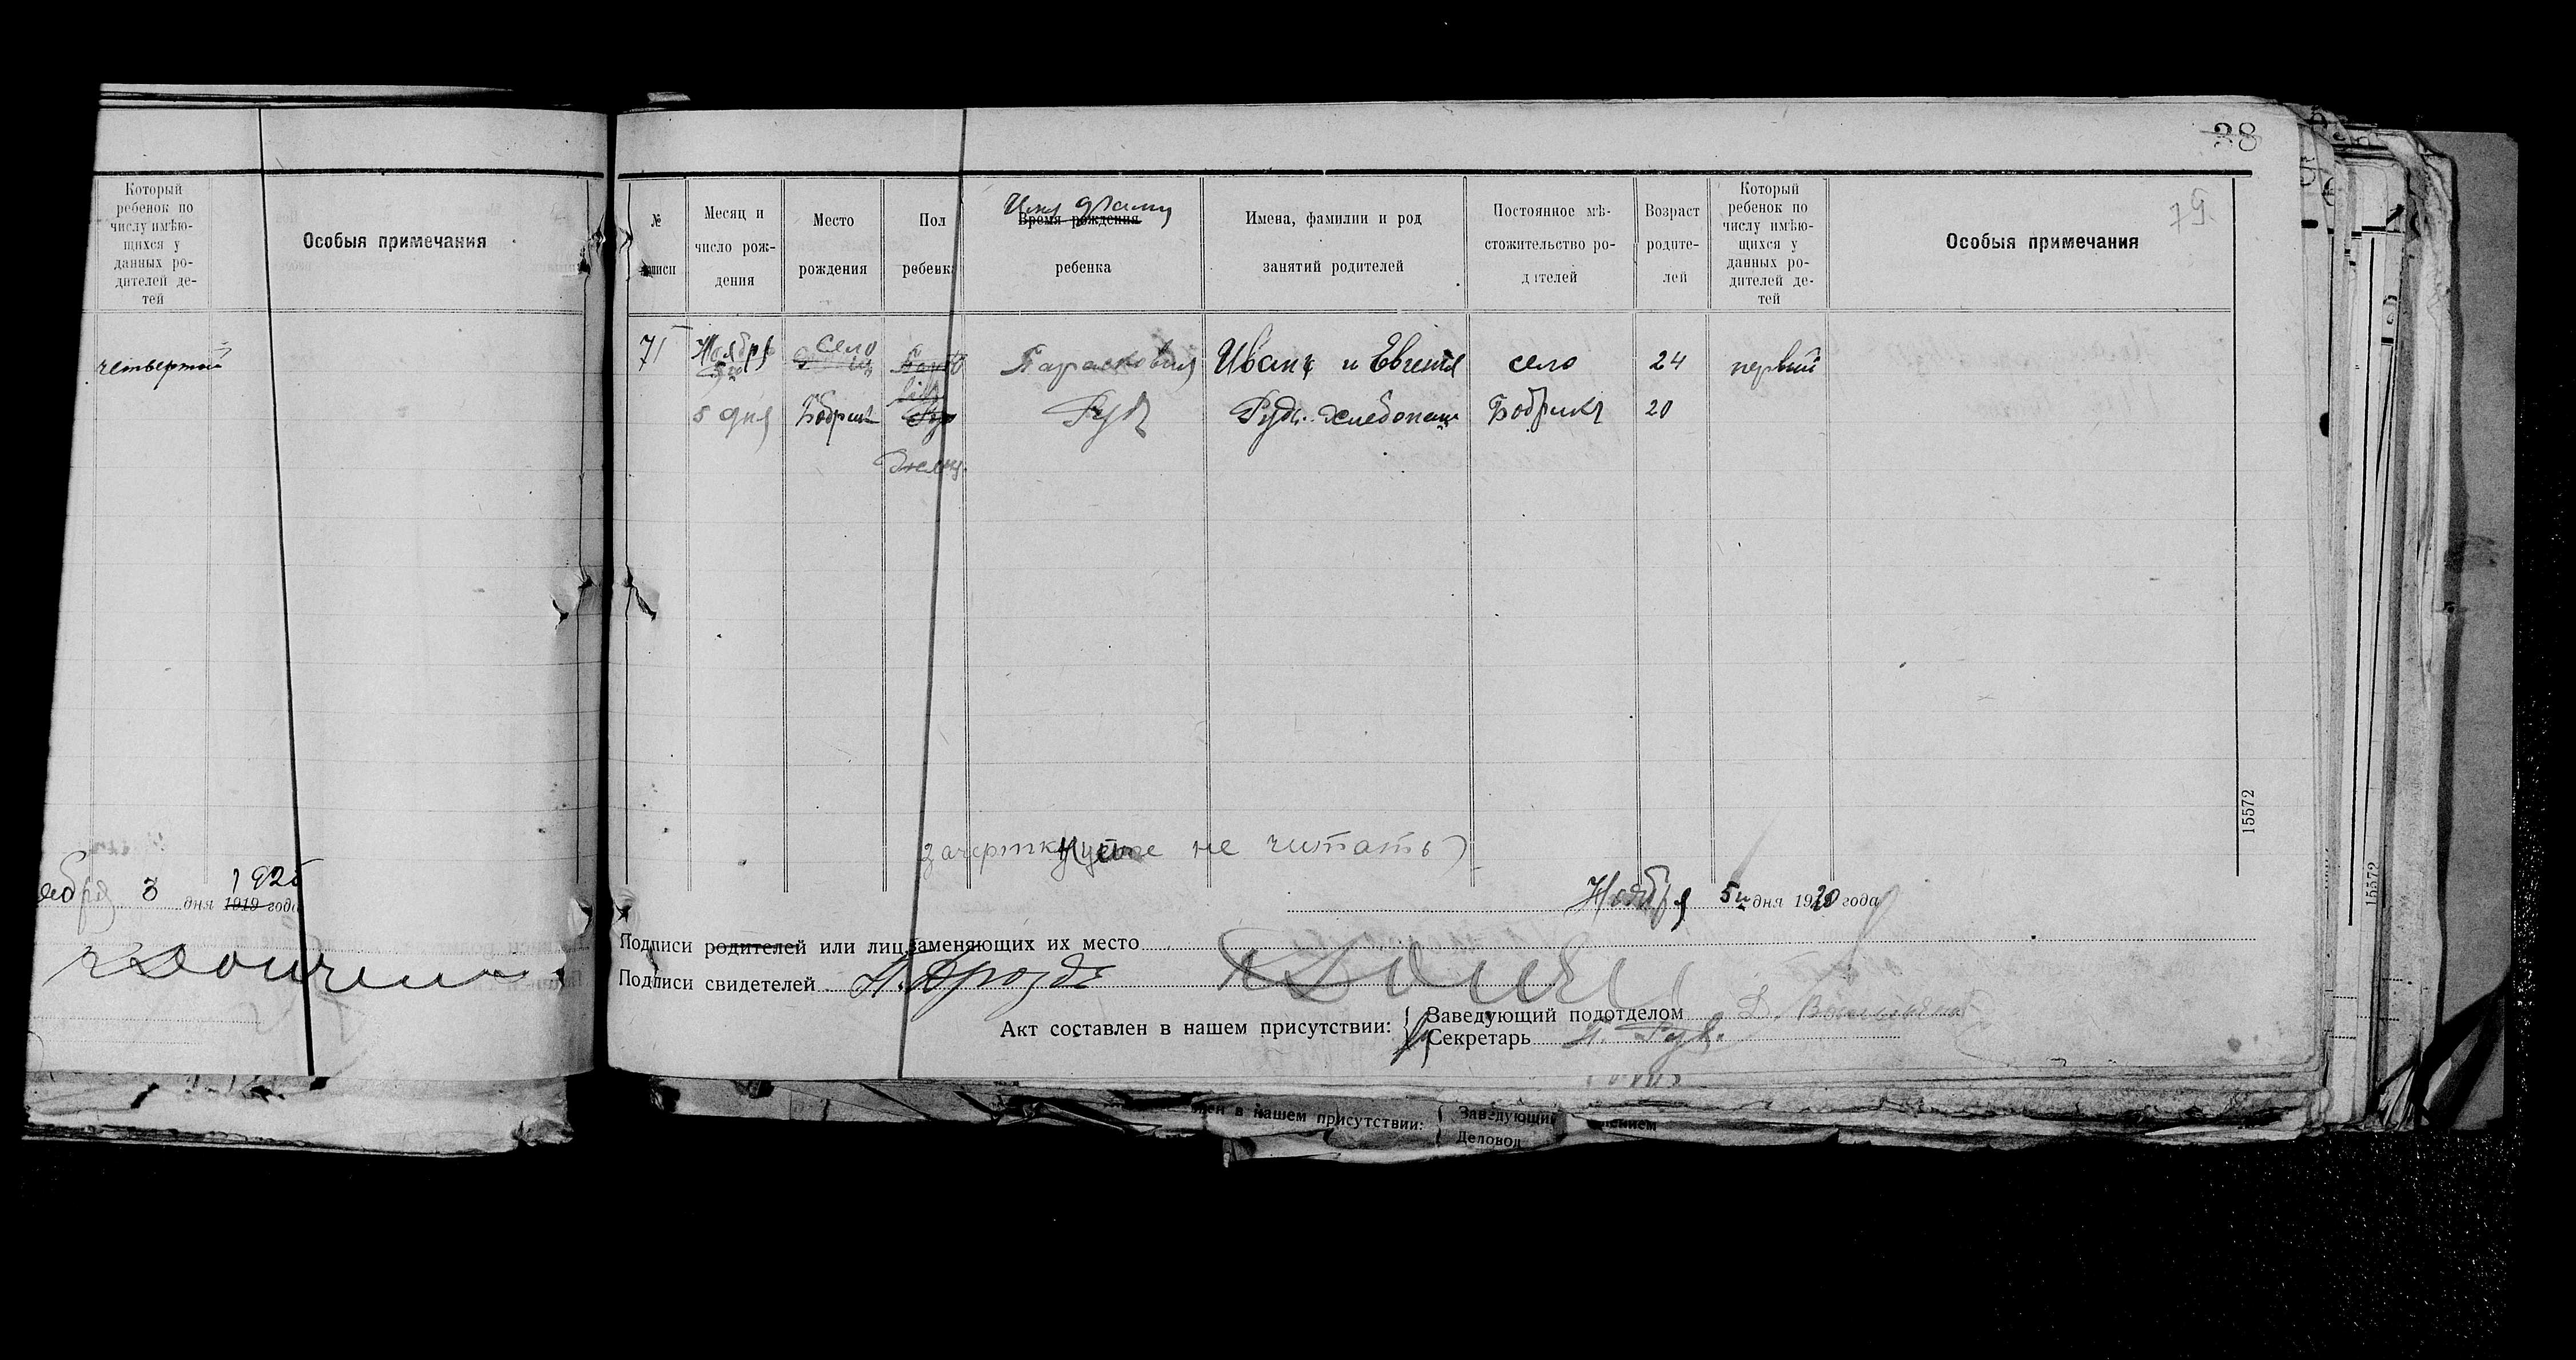 Который
ребенок по
числу имѣю-
щихся у
данных ро-
дителей де-
тей
Особыя примечания
четвертой
3 дня 1919 года
1920
38
79
№
записи
Месяц и
число рож-
дения
Место
рождения
Пол
ребенка
Имя
Время рождения
ребенка
Имена, фамилии и род
занятий родителей
Постоянное мѣ-
стожительство ро-
дителей
Возраст
родите-
лей
Который
ребенок по
числу имѣю-
щихся у
данных ро-
дителей де-
тей
Особыя примечания
71 Ноября село Парасковия Иванъ и Евгения село 24 первый
5 дня Бобрик Рудь Рудь хлебопаш Бобрикъ 20
женск.
зачеркнутое не читать)
15572
Ноября 5го дня 1920 года
Подписи родителей или лиц заменяющих их место
Подписи свидетелей Н. Дроздъ
Акт составлен в нашем присутствии:
Заведующий подотделом
Секретарь
15572
в нашем присутствии:
Заведующий
Деловод